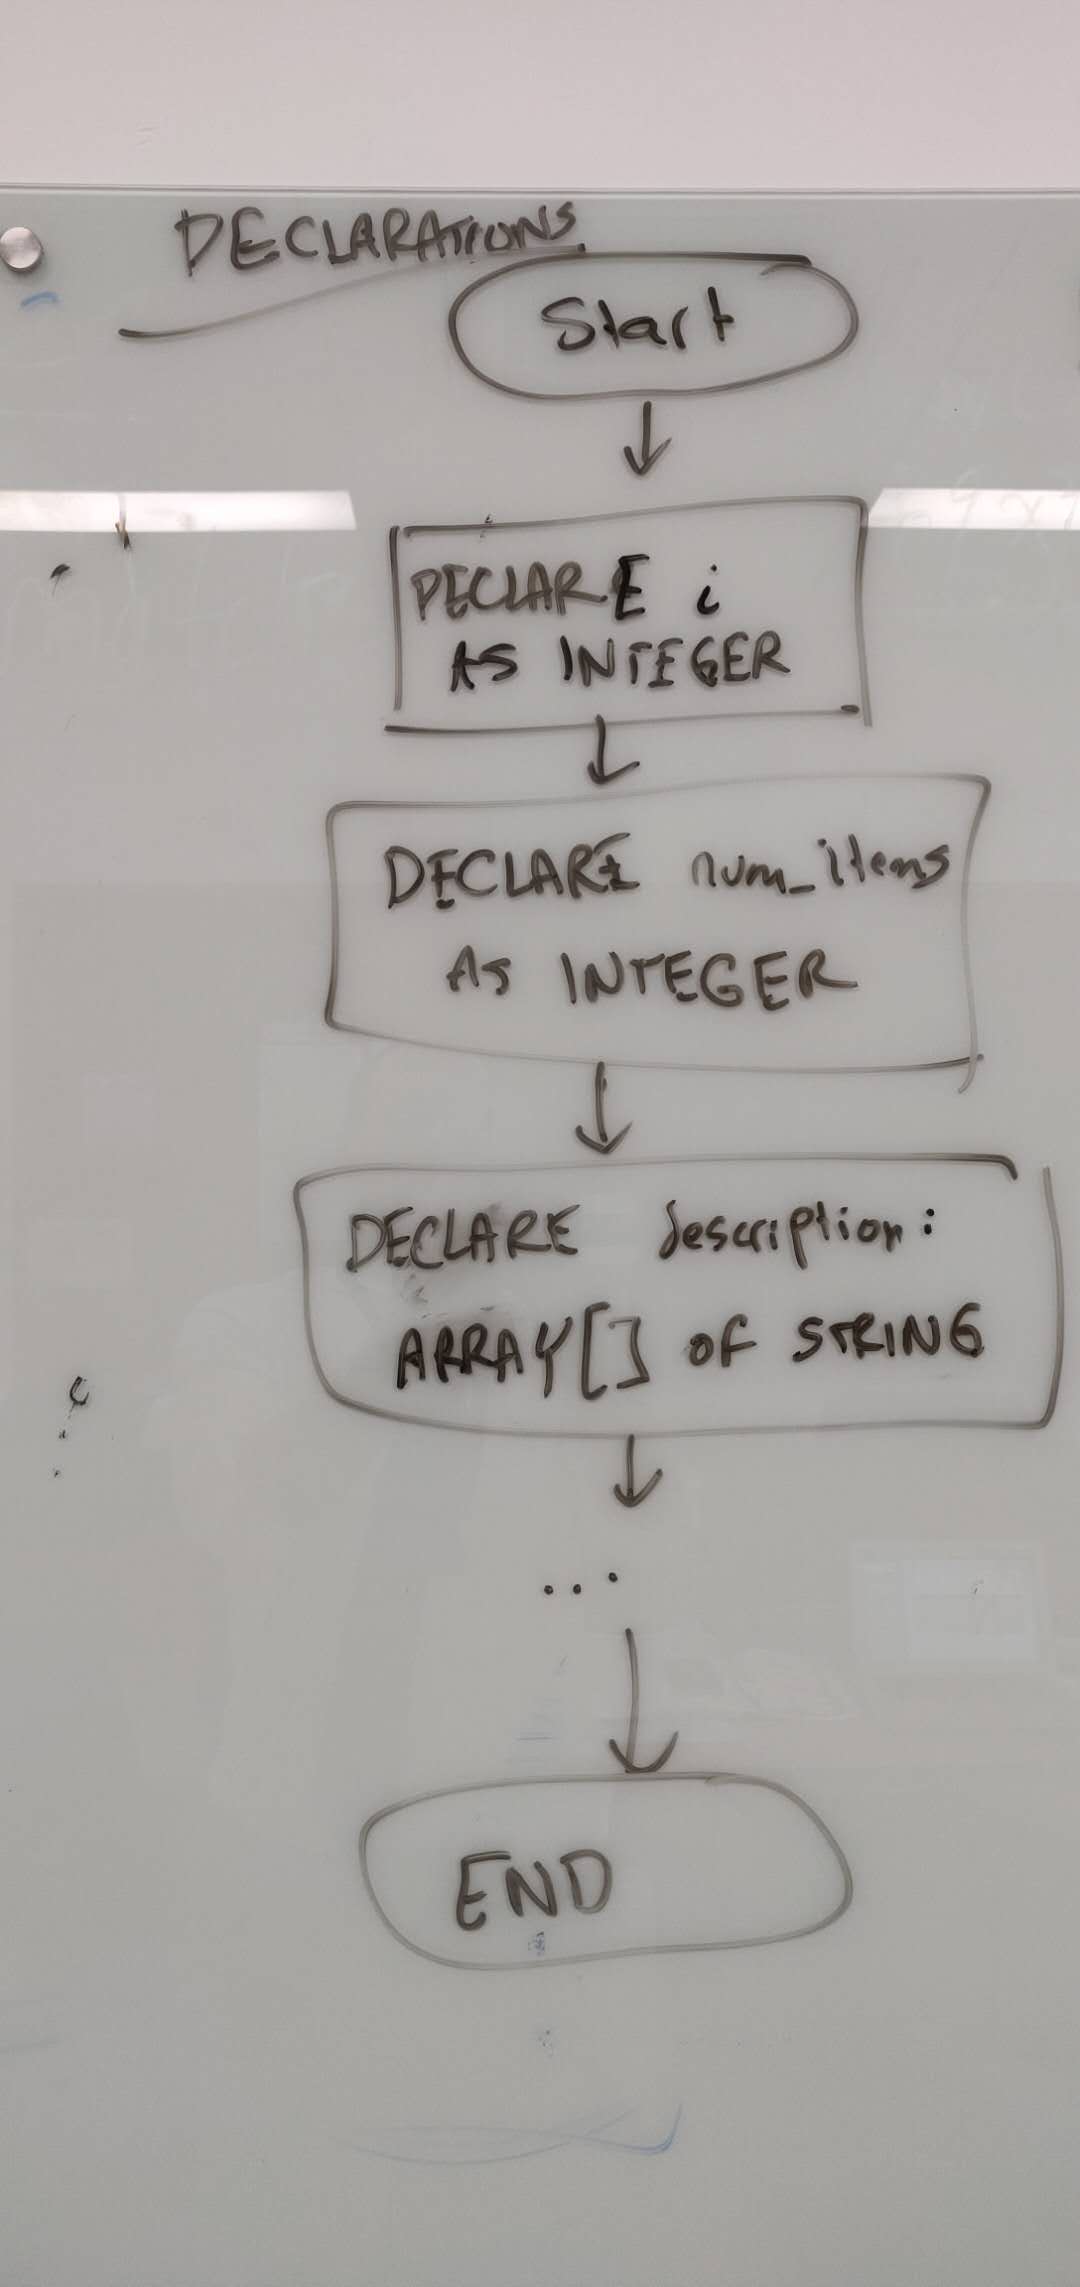 DECLARATIONS
Start
DECLARE i
AS INTEGER
DECLARE num_items
AS INTEGER
DECLARE description:
ARRAY[] OF STRING
...
END